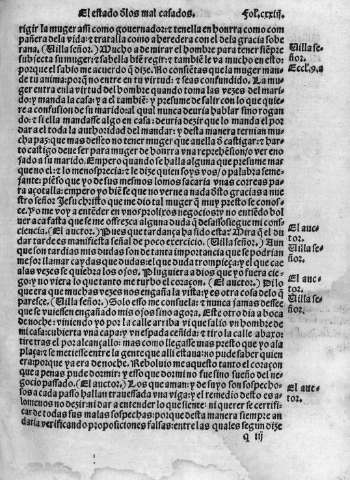 El estado ðlos mal casados. Fol.cxxiij.
rigir la muger assi como gouernador: ⁊ tenella en honrra como com
pañera de la vida: ⁊ tratalla como a heredera con el dela gracia sobe
rana. (Uilla señor.) Mucho a de mirar el hombre para tener siẽpre
subjecta su muger: ⁊ sabella biẽ regir: ⁊ tambiẽ le va mucho en esto:
porque el sabio me acuerdo q̃ dize. No consiẽtas que la muger man
de tu anima: porq̃ no entre en tu virtud: ⁊ seas confundido. La mu
ger entra en la virtud del hombre quando toma las vezes del mari-
do: y manda la casa y a el tambiẽ: y presume de salir con lo que quie-
re a confusion de su marido: al qual nunca deuria hablar sino rogan
do: ⁊ si ella mandasse algo en casa: deuria dezir que lo manda el por
dar a el toda la authoridad del mandar: y desta manera ternian mu
cha paz: que mas desseo no tener muger que auella ð castigar: ⁊ bar
to castigo deue ser para muger de honrra vna reprehẽsion/o ver eno
jado a su marido. Empero quando se halla alguna que presume mar
que no el: ⁊ lo menosprecia: ⁊ le dize quien soys vos/o palabra seme-
jante: piẽso que yo de sus mesmos lomos sacaria vnas correas pa-
ra açotalla: empero yo biẽ se que no verne a nada ðsto gracias a nue
stro señor Jesu christo que me dio tal muger q̃ muy presto se conos-
ce. Yo me voy a entẽder en vnos prolixos negocios: ⁊ y no entiẽdo bol
uer aca fasta que se me offrezca alguna duda q̃ dessossiegue mi cons-
ciencia. (El auctor.) Pues que tardança ha sido esta? Mira q̃ el du
dar tarde es manifiesta señal de poco exercicio. (Uilla señor.) Aun
que son tardias mis dudas son de tanta importancia que se podrian
mejor llamar caydas que dudas: el que duda trompieça: y el que cae
a las vezes se quiebra los ojos. Pluguiera a dios que yo fuera cie-
go: y no viera lo que tanto me turbo el coraçon. (El auctor.) Pi lo
quiera que muchas vezes nos engaña la vista: y es otra cosa delo q̃
paresce. (Uilla señor.) Solo esso me consuela: ⁊ nunca jamas dessee
que se vuiessen engañado mis ojos sino agora. Este otro dia a boca
de noche: viniendo yo por la calle arriba vi que salio vn hombre de
mi casa: cubierta vna capa: y vn espada ceñida: ⁊ tiro la calle abaxo:
tire tras el por alcançallo: mas como llegasse mas presto que yo a la
plaça: ⁊ se metiesse entre la gente que alli estaua: no pude saber quien
era: porque ya era de noche. Reboluio me aquesto tanto el coraçon
que a penas pude dormir: y esso que dormi no fue sino sueño del ne-
gocio passado. (El auctor.) Los que aman: y de suyo son sospecho-
sos a cada passo hallan trauessada vna viga: y el remedio desto es a
lomenos no dezir: ni dar a entender lo que siente: ni querer se certifi-
car de todas sus malas sospechas: porque desta manera siempre an
daria verificando proposiciones falsas: entre las quales segun dize
q iij
Uilla se-
ñor.
Eccl.9.a
El auc-
tor.
Uilla se
ñor.
El auc
tor.
Uilla se
ñor.
El auc-
tor.